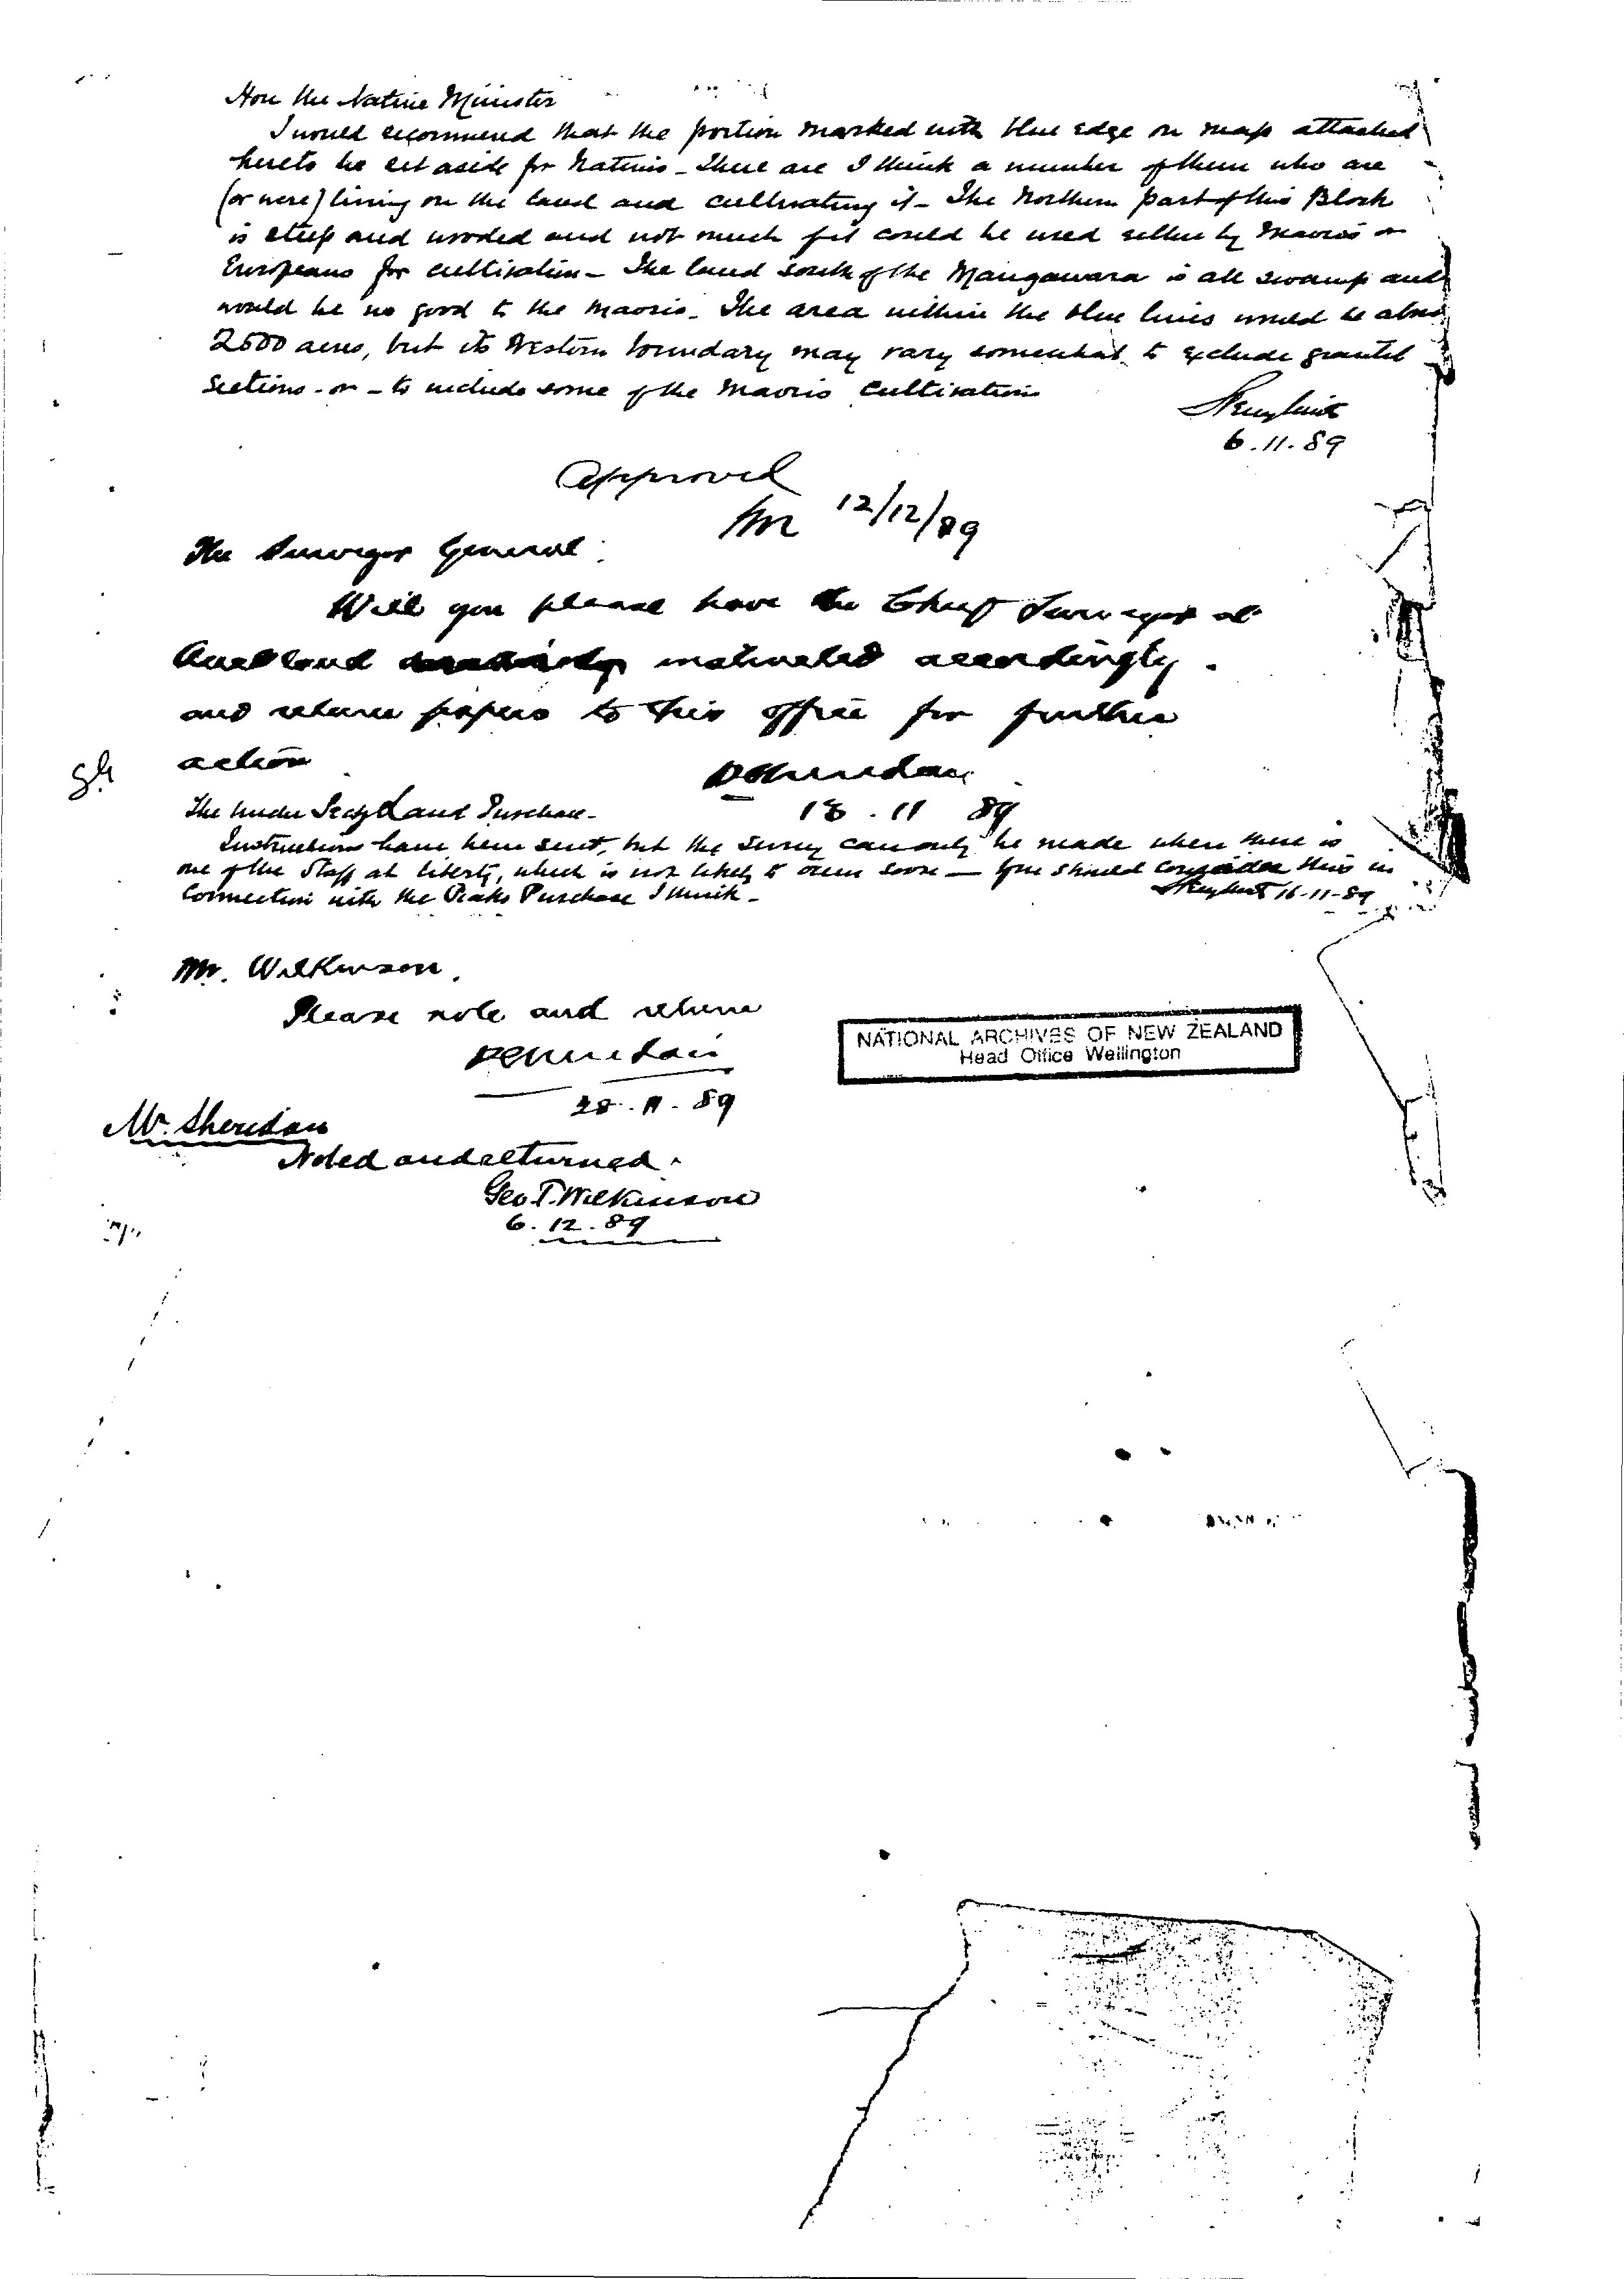 Hon the Native Minister
I would recommend that the portion marked with blue edge on map attached
hereto be set aside for Natives - There are I think a number of them who are
(or were) living on the land and cultivating it - The Northern part of this Block
is steep and wooded and not much of it could be used either by Maoris or
Europeans for cultivation - The land south of the Mangawara is all swamp and
would be no good to the Maoris. The area within the blue lines would be about
2500 acres, but its Western boundary may vary somewhat to exclude granted
Sections - or - to include some of the Maoris cultivations
6.11.89
Approved
12/12/89
The Surveyor General.
Will you please have the Chief Surveyor at
Auckland instructed accordingly.
and return papers to this office for further
action
PSheridan
18.11 89
The Under Secy Land Purchase -
Instructions have been sent, but the survey can only be made when there is
one of the Staff at liberty, which is not likely to occur soon - You should consider this in
connection with the Piako Purchase I think -
16-11-89
Mr. Wilkinson.
Please note and return
PSheridan
28.11.89
NATIONAL ARCHIVES OF NEW ZEALAND
Head Office Wellington
Mr. Sheridan
Noted and returned.
Geo. T. Wilkinson
6.12.89